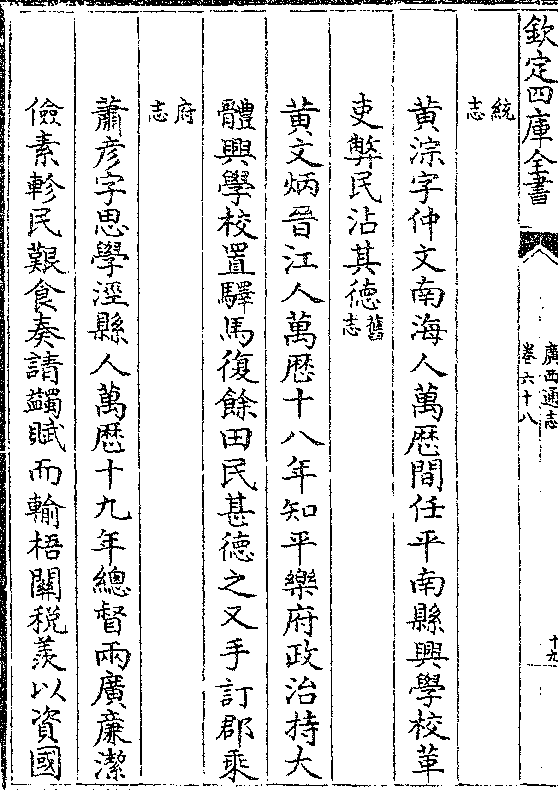 欽定四庫全書
廣西通志
卷六十八
十九
統
志
黄淙字仲文南海人萬厯間任平南縣興學校革
吏弊民沾其德舊
志
黄文炳晉江人萬厯十八年知平樂府政治持大
體興學校置驛馬復餘田民甚德之又手訂郡乘
府
志
蕭彦字思學涇縣人萬厯十九年總督兩廣廉潔
儉素軫民艱食奏請蠲賦而輸梧關税羡以資國